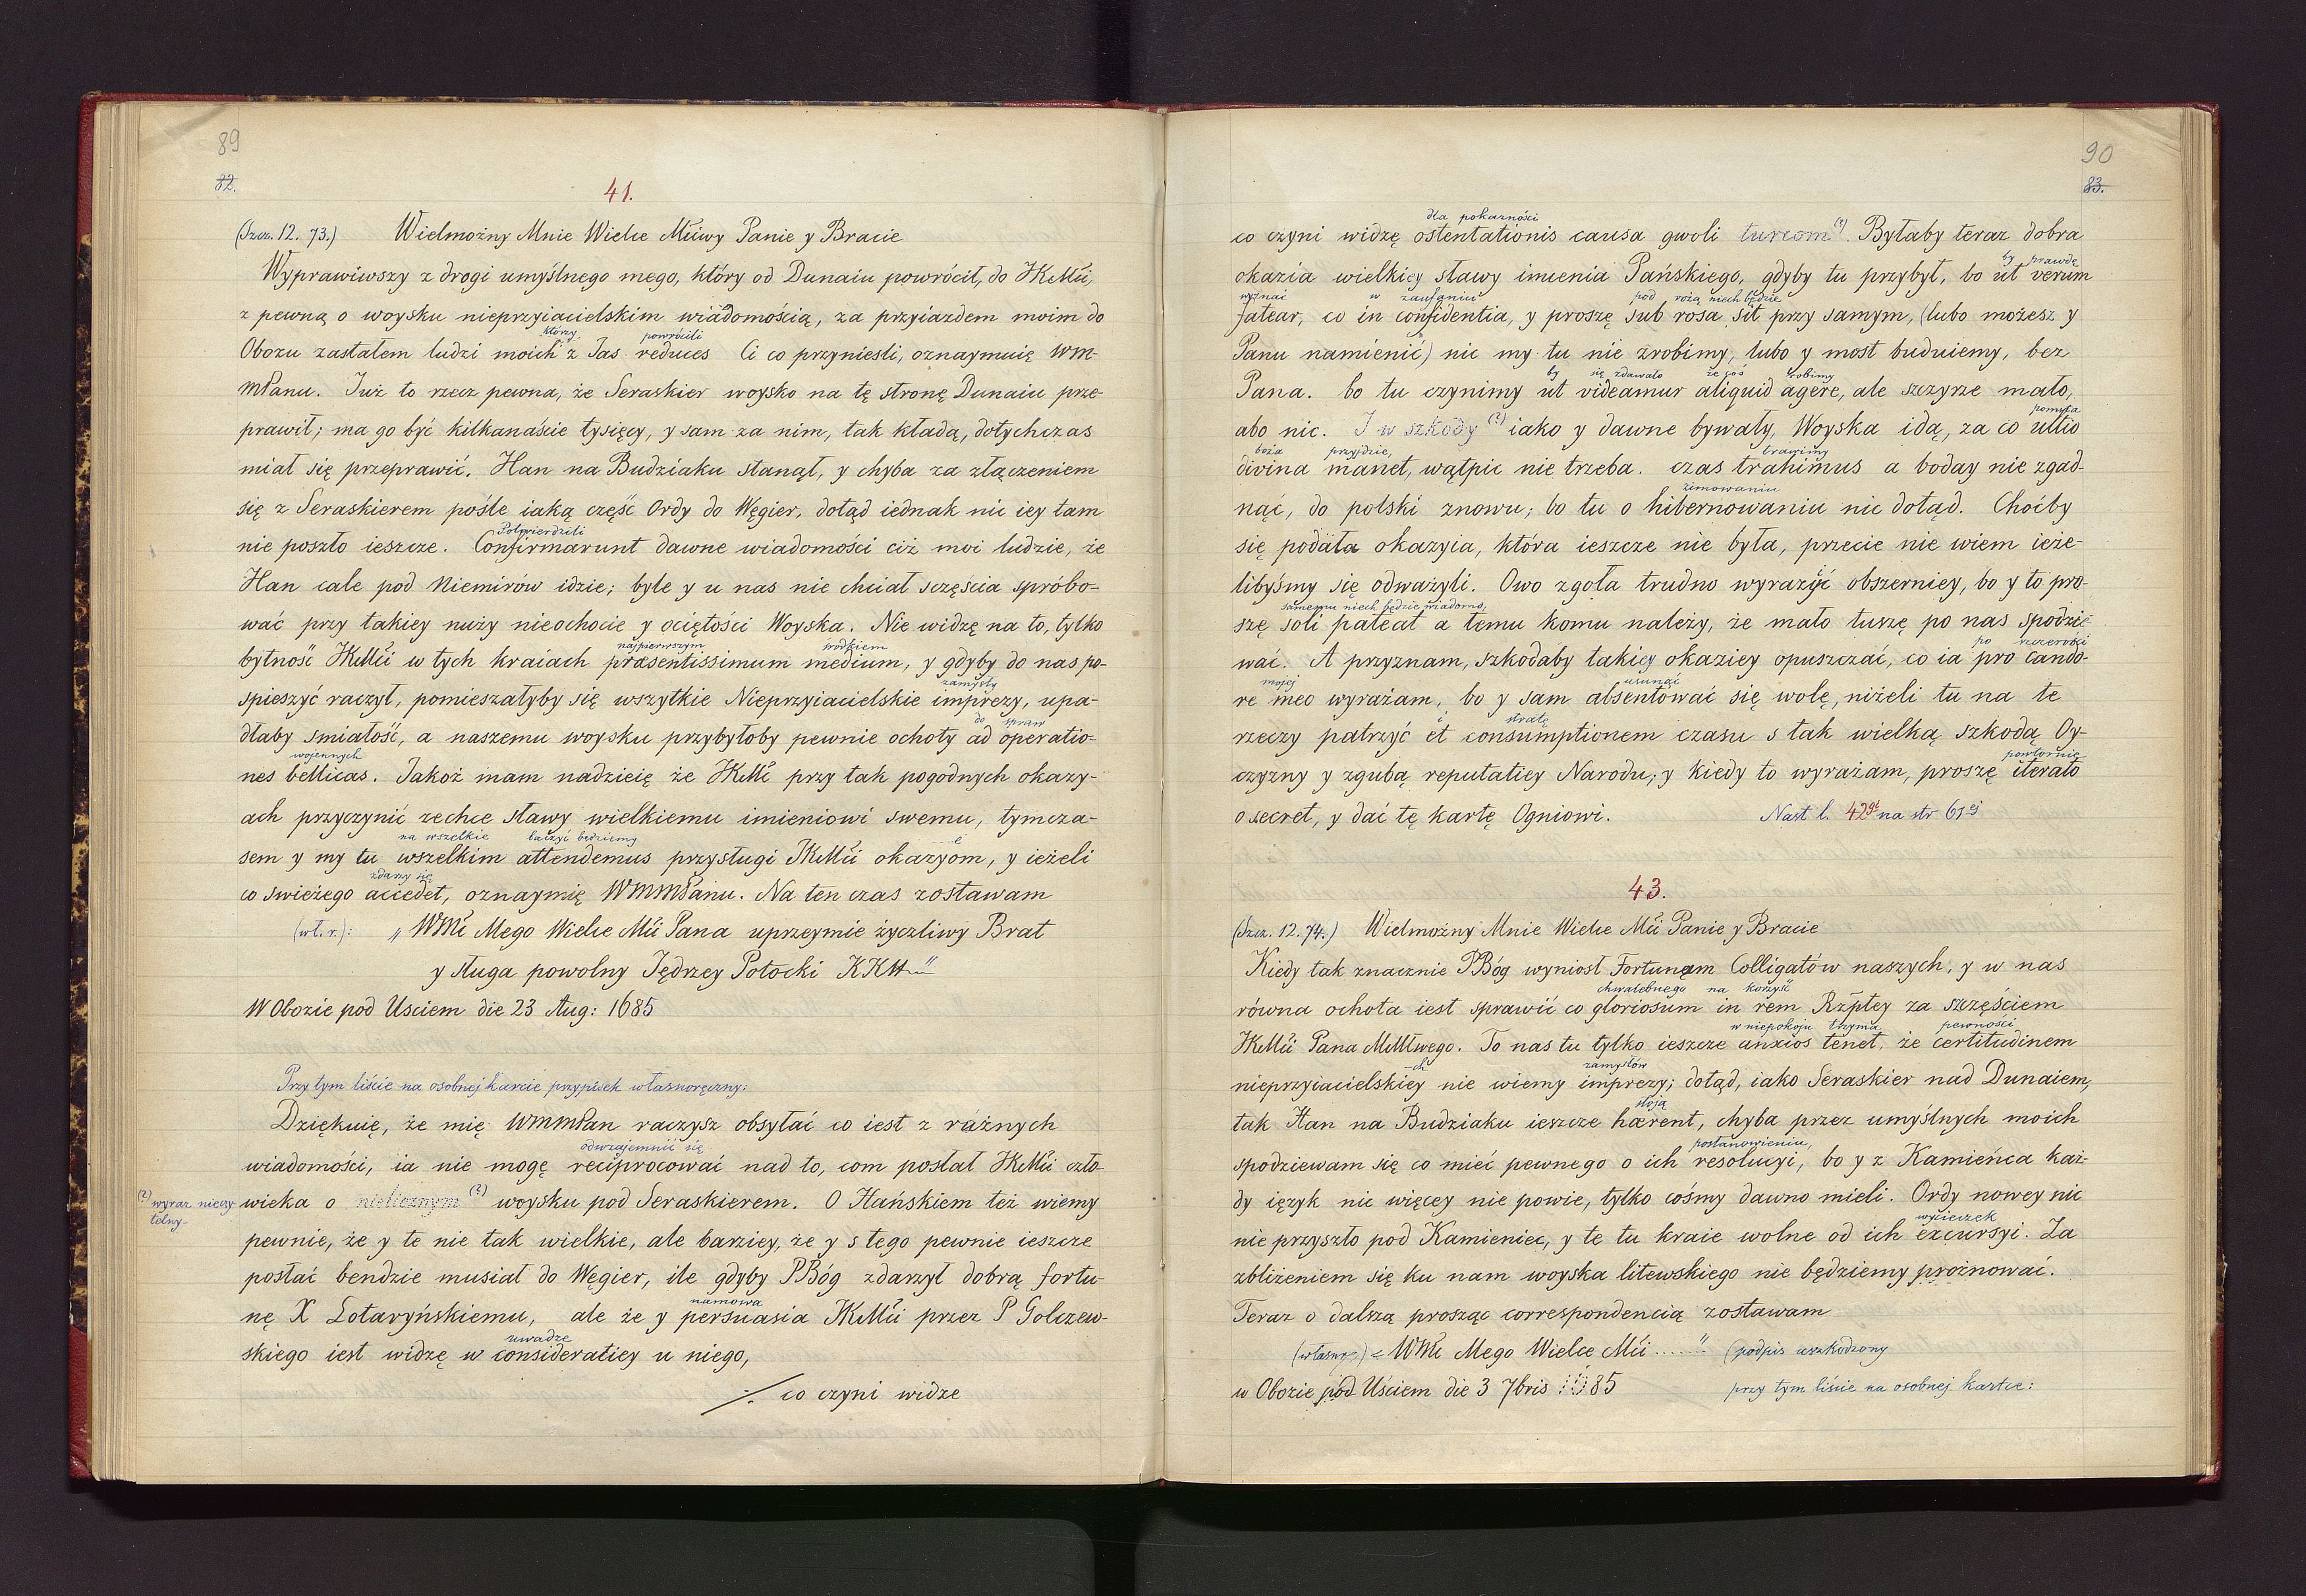 89
82.
41.
(Szcz. 12. 73.) Wielmożny Mnie Wielce Mciwy Panie y Bracie
Wyprawiwszy z drogi umyślnego mego, który od Dunaiu powrócił, do JKMci,
z pewną o woysku nieprzyiacielskim wiadomością, za przyiazdem moim do
którzy powrócili
Obozu zastałem ludzi moich z Jas reduces Ci co przyniesli, oznaymuię WM-
MPanu. Już to rzecz pewna, że Seraskier woysko na tę stronę Dunaiu prze-
prawił; ma go być kilkanaście tysięcy, y sam za nim, tak kładą, dotychczas
miał się przeprawić. Han na Budziaku stanął, y chyba za złączeniem
się z Seraskierem pośle iaką część Ordy do Węgier, dotąd iednak nic iey tam
Potwierdzili
nie poszło ieszcze. Confirmarunt dawne wiadomości ciż moi ludzie, że
Han cale pod Niemirów idzie; byle y u nas nie chciał sczęscia spróbo-
wać przy takiey nuży nieochocie y ociętości Woyska. Nie widzę na to, tylko
najpierwszym środkiem
bytność JKMci w tych kraiach præsentissimum medium, y gdyby do nas po-
zamysły
spieszyć raczył, pomieszałyby się wszytkie Nieprzyiacielskie imprezy, upa-
do spraw
dłaby smiałość, a naszemu woysku przybyłoby pewnie ochoty ad operatio-
wojennych
nes bellicas. Jakoż mam nadzieię że JKMć przy tak pogodnych okazy-
ach przyczynić zechce sławy wielkiemu imieniowi swemu, tymcza-
na wszelkie baczyć będziemy e
sem y my tu wszelkim attendemus przysługi JKMci okazyom, y ieżeli
zdarzy się
co swieżego accedet, oznaymię WMMPanu. Na ten czas zostawam
(wł. r.): „WMć Mego Wielce Mci Pana uprzeymie życzliwy Brat
y sługa powolny Jędrzey Potocki KKH"
W Obozie pod Usciem die 23 Aug: 1685
Przy tym liście na osobnej karcie przypisek własnoręczny:
Dziękuię, że mię WMMPan raczysz obsyłać co iest z różnych
odwzajemnić się
wiadomości, ia nie mogę reciprocować nad to, com posłał JKMci czło-
(?) wyraz nieczy-
telny-
wieka o nielicznym (?) woysku pod Seraskierem. O Hańskiem też wiemy
pewnie, że y te nie tak wielkie, ale barziey, że y s tego pewnie ieszcze
posłać bendzie musiał do Węgier, ile gdyby PBóg zdarzył dobrą fortu-
namowa
nę X Lotaryńskiemu, ale że y persuasia JKMci przez P Golczew-
uwadze
skiego iest widzę w consideratiey u niego,
·/. co czyni widze
90
83.
dla pokazności
co czyni widzę ostentationis causa gwoli turcom (?). Byłaby teraz dobra
by prawdę
okazia wielkiey sławy imienia Pańskiego, gdyby tu przybył, bo ut verum
wyznać w zaufaniu pod różą niech będzie
fatear, co in confidentia, y proszę sub rosa sit przy samym, (lubo możesz y
Panu namienić) nic my tu nie zrobimy, lubo y most buduiemy, bez
by się zdawało że coś robimy
Pana. bo tu czynimy ut videamur aliquid agere, ale szczyrze mało,
pomsta
abo nic. I w szkody (?) iako y dawne bywały, Woyska idą, za co ultio
boża przyjdzie, trawimy
divina manet, wątpić nie trzeba. czas trahimus a boday nie zgad-
zimowaniu
nąć, do polski znowu; bo tu o hibernowaniu nic dotąd. Choćby
się podała okazyia, która ieszcze nie była, przecie nie wiem ieże-
libyśmy się odważyli. Owo zgoła trudno wyrazić obszerniey, bo y to pro-
samemu niech będzie wiadomo,
szę soli pateat a temu komu należy, że mało tuszę po nas spodzie-
po szczerości
wać. A przyznam, szkodaby takiey okaziey opuszczać, co ia pro cando-
mojej usunąć
re meo wyrażam, bo y sam absentować się wolę, niżeli tu na te
i stratę
rzeczy patrzyć et consumptionem czasu s tak wielką szkodą Oy-
powtórnie
czyzny y zgubą reputatiey Narodu; y kiedy to wyrażam, proszę iterato
o secret, y dać tę kartę Ogniowi. Nast l. 42gi na str 61ej
43.
(Szcz. 12. 74.) Wielmożny Mnie Wielce Mci Panie y Bracie
Kiedy tak znacznie PBóg wyniosł Fortunam Colligatów naszych, y w nas
chwalebnego na korzyść
równa ochota iest sprawić co gloriosum in rem Rzptey za szczęściem
w niepokoju trzyma pewności
JKMci Pana MMłwego. To nas tu tylko ieszcze anxios tenet, że certitudinem
-ch zamysłów
nieprzyiacielskiey nie wiemy imprezy; dotąd, iako Seraskier nad Dunaiem,
stoją
tak Han na Budziaku ieszcze hærent, chyba przez umyślnych moich
postanowieniu,
spodziewam się co mieć pewnego o ich resolucyi, bo y z Kamieńca każ-
dy ięzyk nic więcey nie powie, tylko cośmy dawno mieli. Ordy nowey nic
wycieczek
nie przyszło pod Kamieniec, y te tu kraie wolne od ich excursyi. Za
zbliżeniem się ku nam woyska litewskiego nie będziemy prożnować.
Teraz o dalszą prosząc correspondencią zostawam
(własnor.) „WMć Mego Wielce Mci ......" (podpis uszkodzony
w Obozie pod Uściem die 3 7bris 1685 przy tym liście na osobnej kartce: